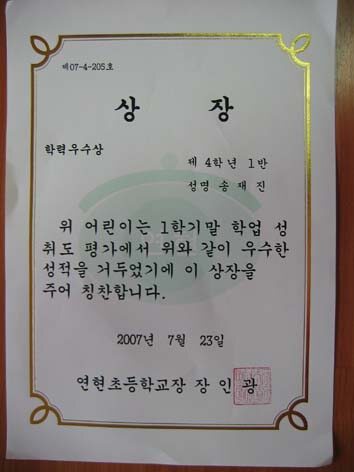 제07-4-205호
상 장
학력우수상
제 4학년 1반
성명 송재진
위 어린이는 1학기말 학업 성
취도 평가에서 위와 같이 우수한
성적을 거두었기에 이 상장을
주어 칭찬합니다.
2007년 7월 23일
연현초등학교장 장인광